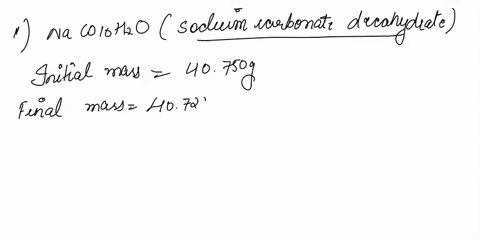 1) Na CO10H2O ( sodium carbonate decahydrate)
Initial mass = 40.750g
Final mass = 40.72